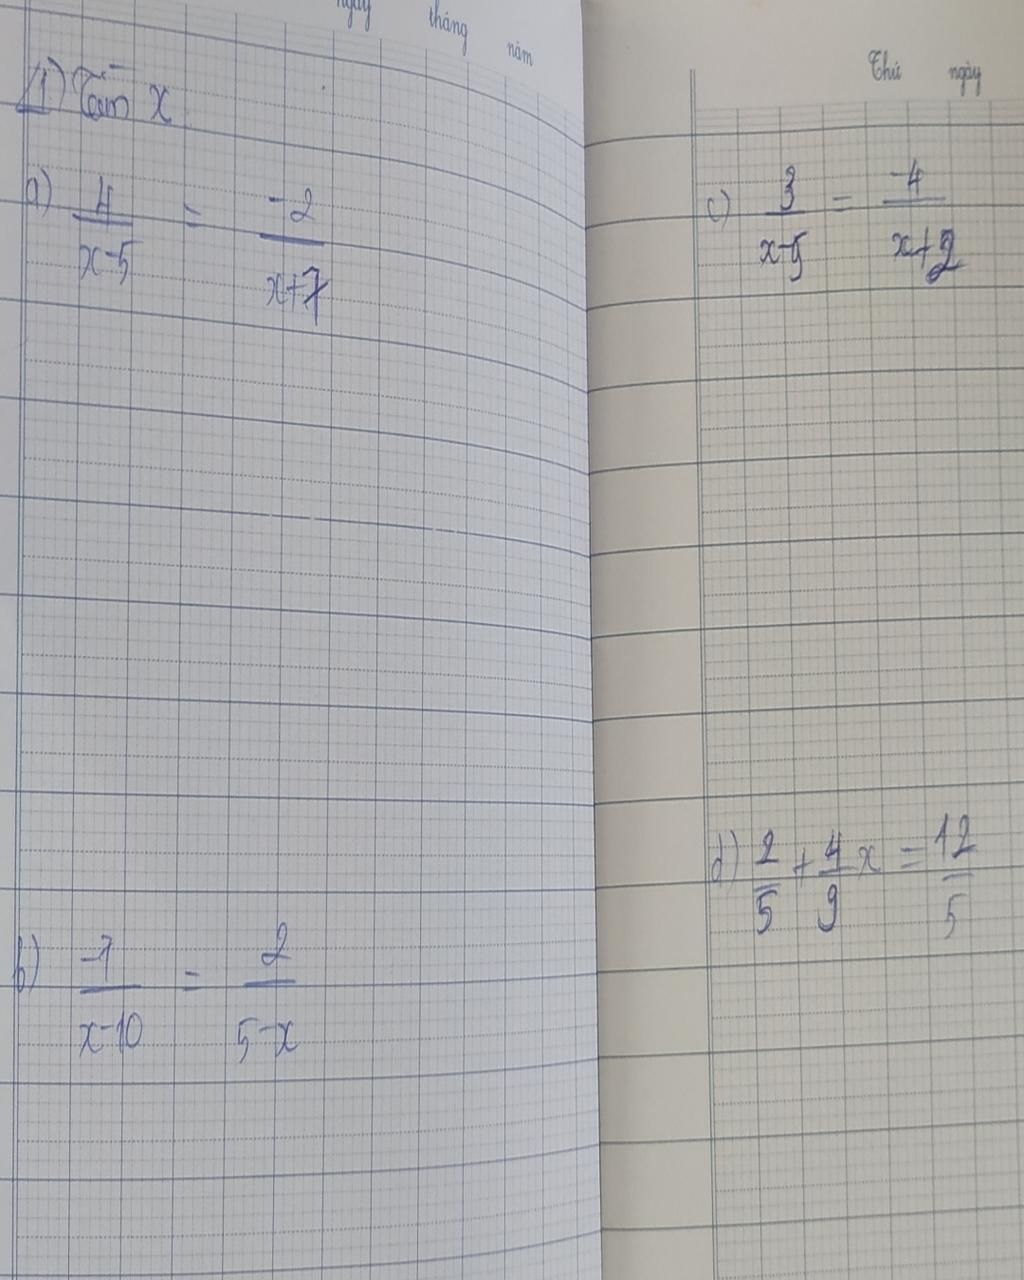 ngày tháng năm
1) Tìm x
a) 4/(x-5) = -2/(x+7)
b) -7/(x-10) = 2/(5-x)
Thứ ngày
c) 3/(x-5) = -4/(x+2)
d) 2/5 + 4/9 x = 12/5